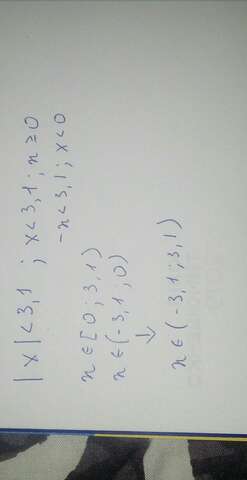 |x| < 3,1 ; x < 3,1 ; x ≥ 0
-x < 3,1 ; x < 0
x ∈ [0 ; 3,1)
x ∈ (-3,1 ; 0)
↓
x ∈ (-3,1 ; 3,1)